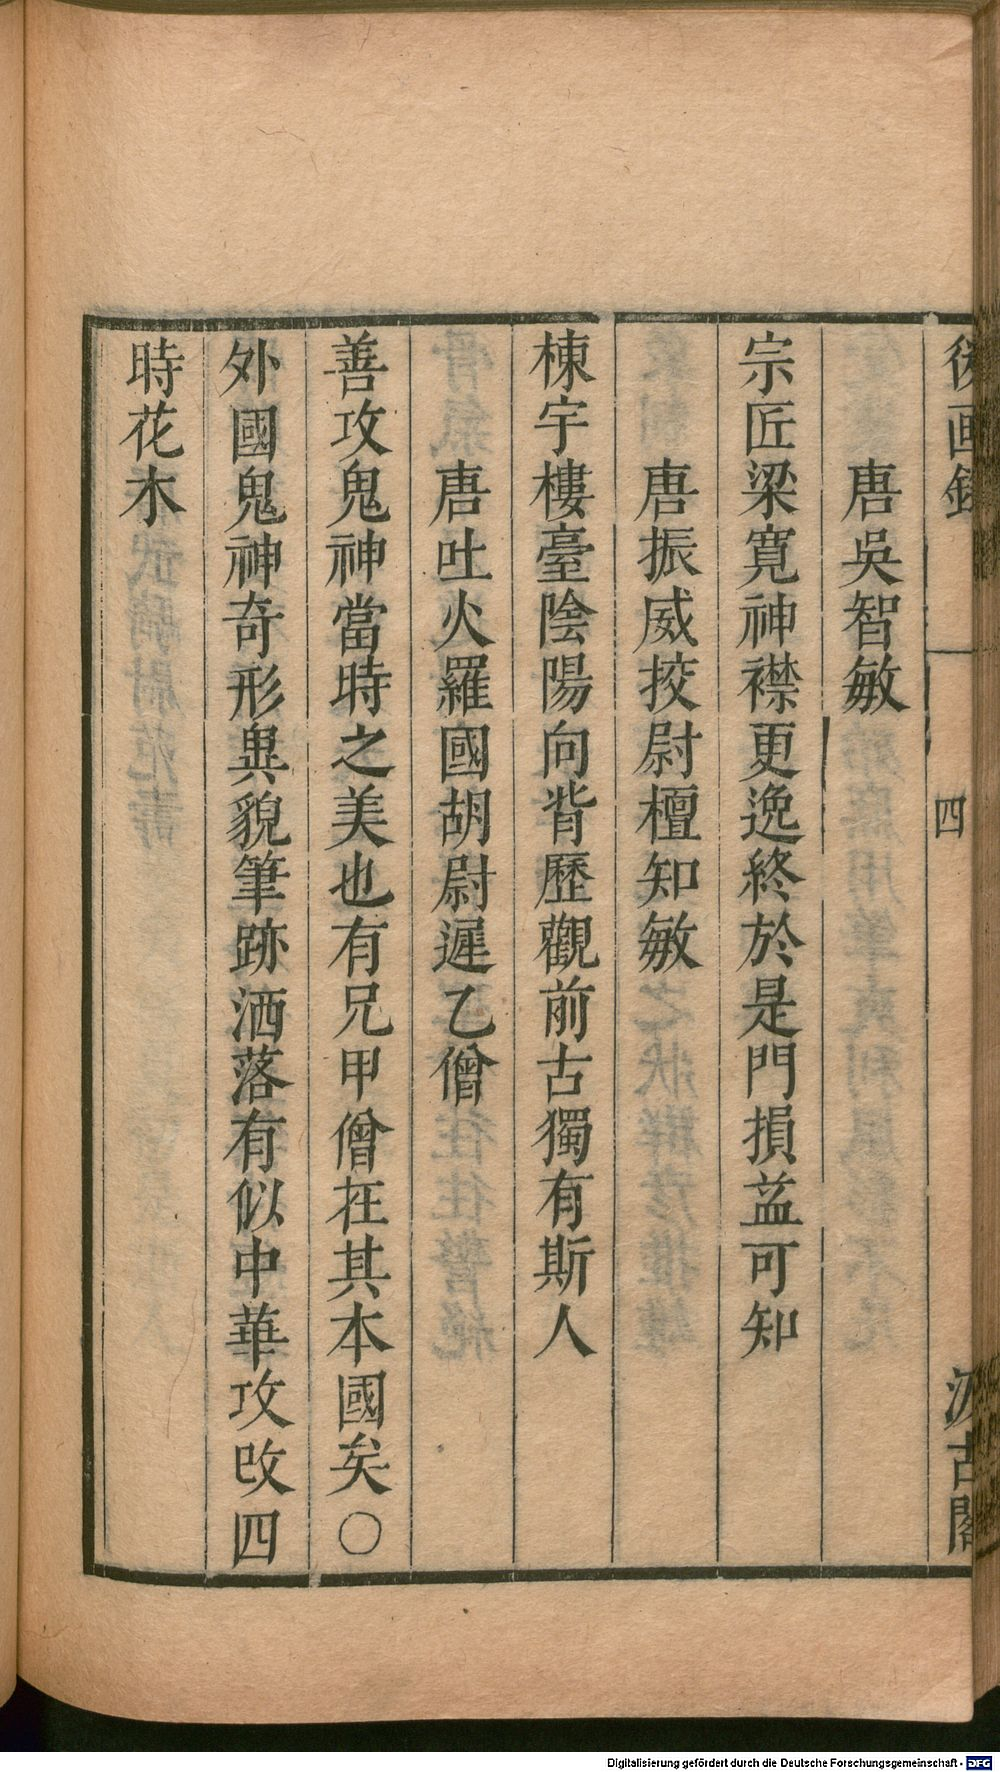 後画録 四 汲古閣
唐吳智敏
宗匠梁寛神襟更逸終於是門損益可知
唐振威挍尉檀知敏
棟宇樓臺陰陽向背歷觀前古獨有斯人
唐吐火羅國胡尉遲乙僧
善攻鬼神當時之美也有兄甲僧在其本國矣○
外國鬼神奇形異貌筆跡洒落有似中華攻改四
時花木
Digitalisierung gefördert durch die Deutsche Forschungsgemeinschaft - DFG